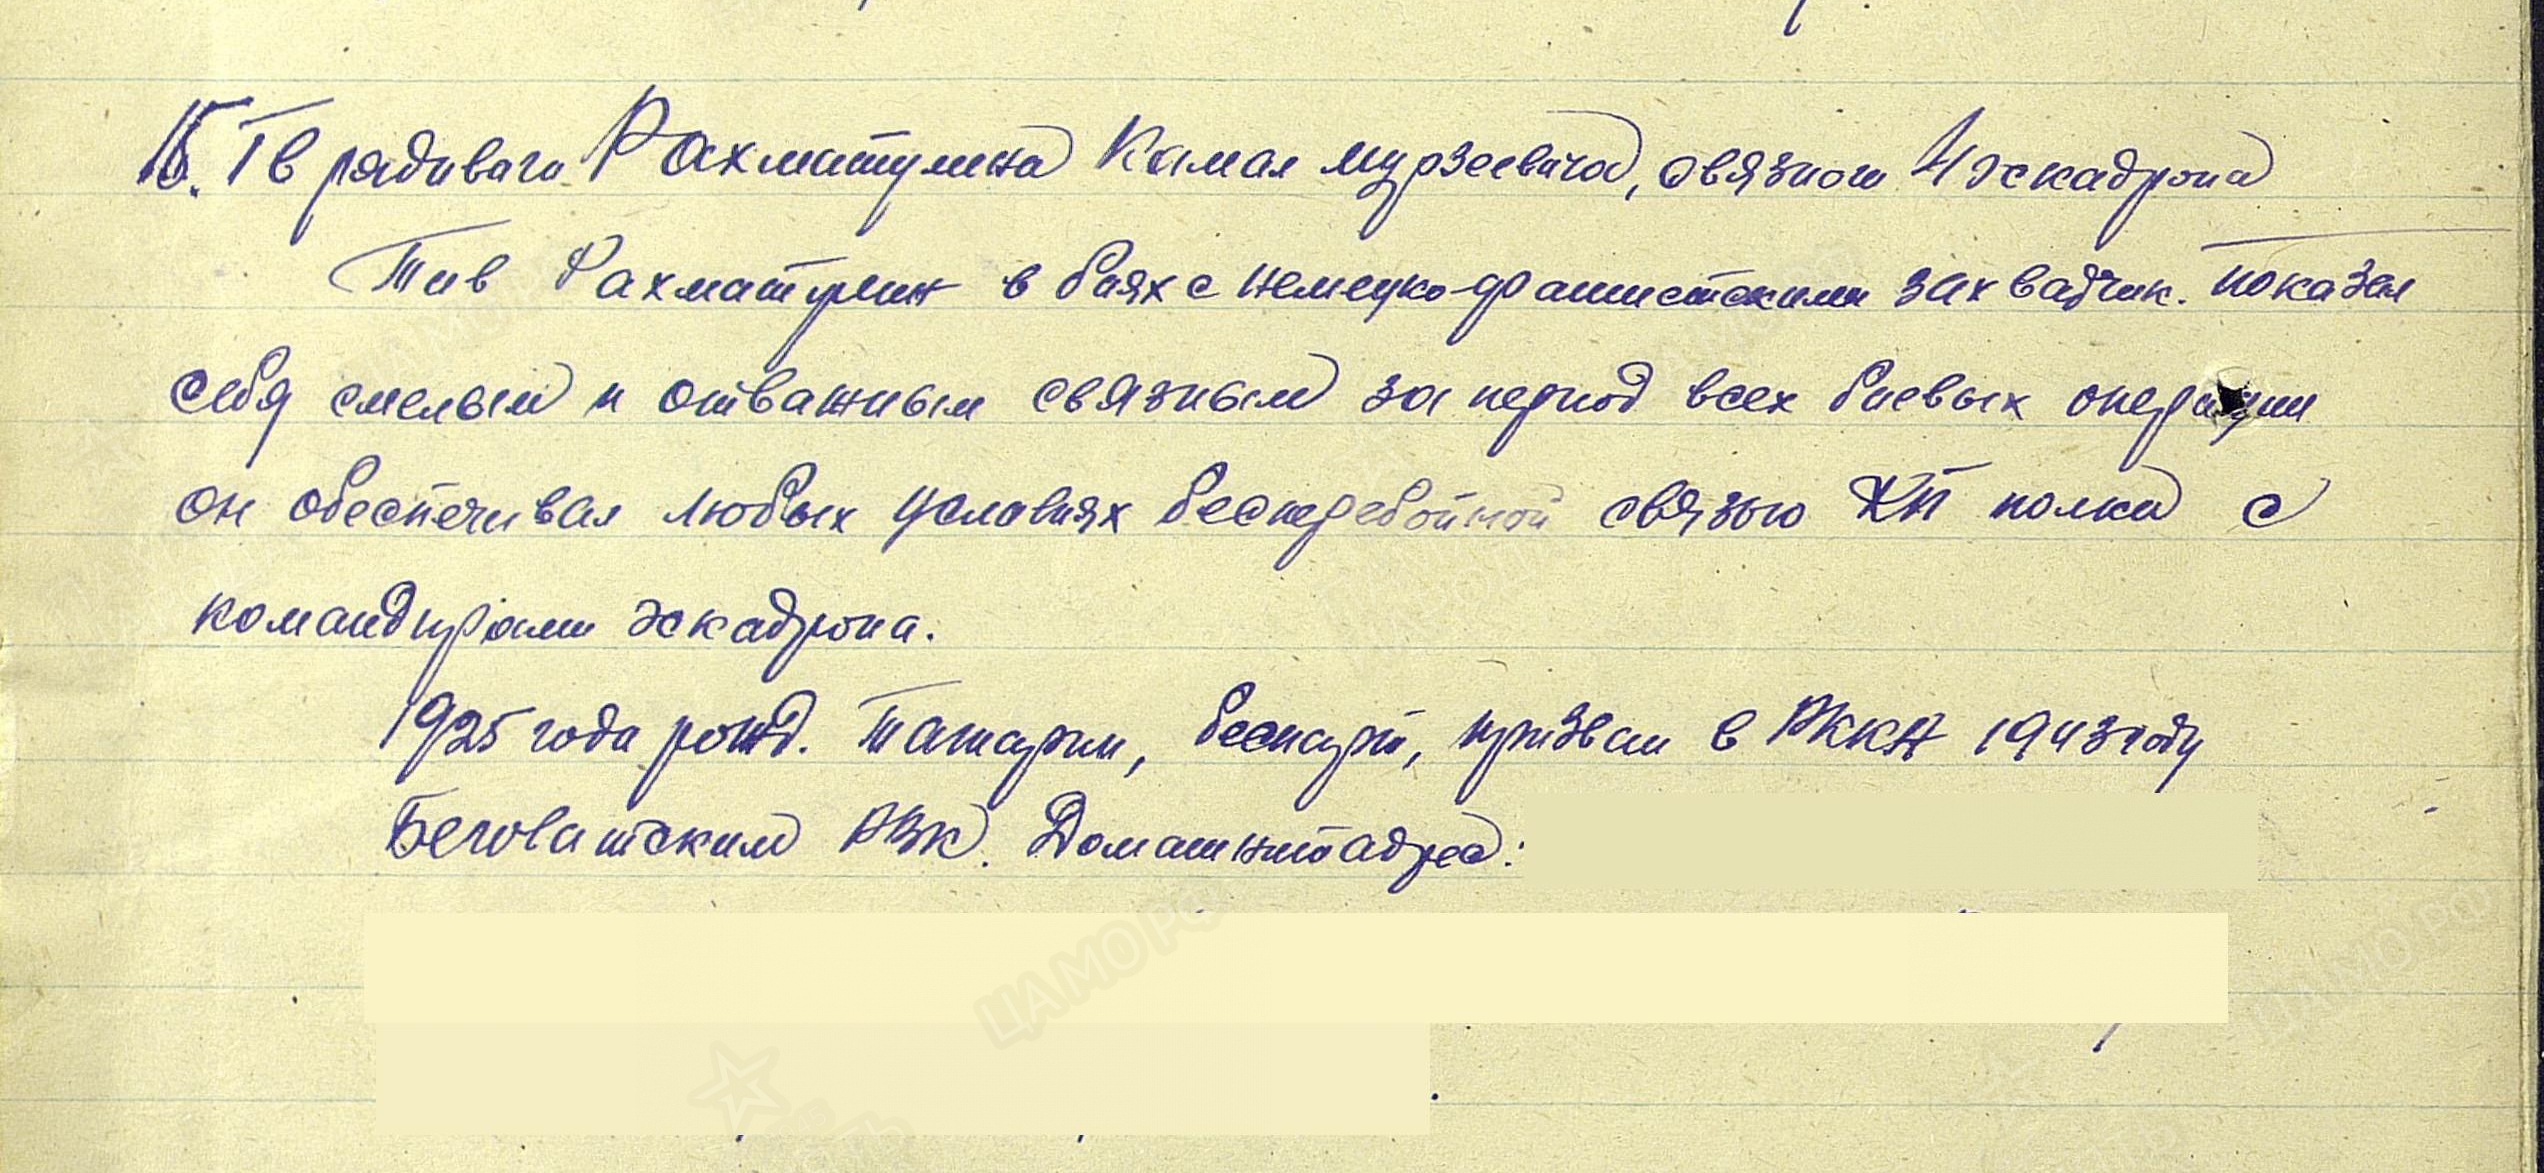 15. Гв рядового Рахматулина Камал Мурзеевича, связной 4 эскадрона
Тов Рахматулин в боях с немецко-фашистскими захватчик. показал
себя смелым и отважным связным за период всех боевых операции
он обеспечивал любых условиях бесперебойной связью КП полка с
командирами эскадрона.
1925 года рожд. Татарин, беспарт, призван в РККА 1943 году
Беговатским РВК. Домашний адрес:
ЦАМО РФ
ЦАМО РФ